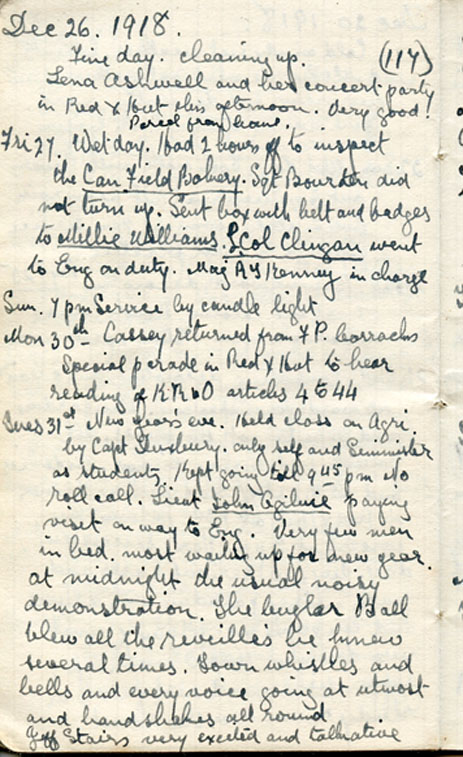 Dec 26. 1918.
Fine day. cleaning up. (117)
Lena Ashwell and her concert party
in Red X Hut this afternoon. Very good.
Parcel from home.
Fri 27. Wet day. Had 2 hours off to inspect
the Can Field Bakery. Sgt Bourden did
not turn up. Sent box with belt and badges
to Millie Williams. L Col Clingan went
to Eng on duty. Maj A S Kenney in charge
Sun. 7 pm Service by candle light
Mon 30th Cassey returned from F P. barracks
Special parade in Red X Hut to hear
reading of K R & O articles 4 to 44
Tues 31st New Year's eve. Held class on Agri.
by Capt only self and
as students. Kept going till 9 45 pm No
roll call. Lieut John Ogilvie paying
visit on way to Eng. Very few men
in bed. most waiting up for new year.
at midnight the usual noisy
demonstration. The bugler Ball
blew all the reveilles he knew
several times. Town whistles and
bells and every voice going at utmost
and handshakes all round
Jeff Stairs very excited and talkative